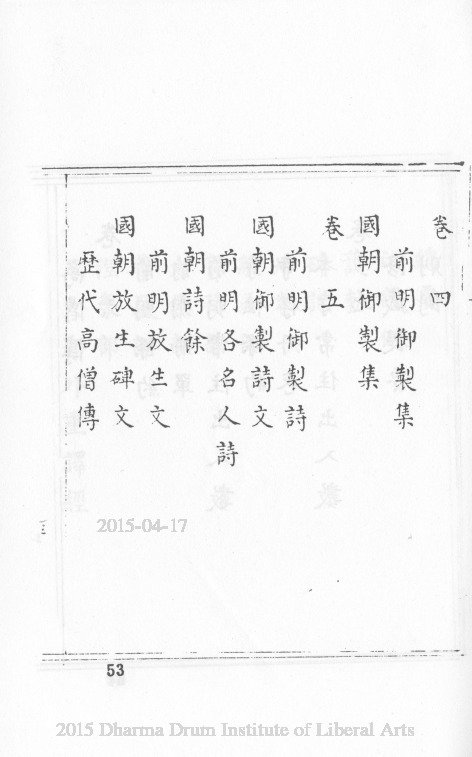 卷四
前明御製集
國朝御製集
卷五
前明御製詩
國朝御製詩文
前明各名人詩
國朝詩餘
前明放生文
國朝放生碑文
歷代高僧傳
三
2015-04-17
53
2015 Dharma Drum Institute of Liberal Arts